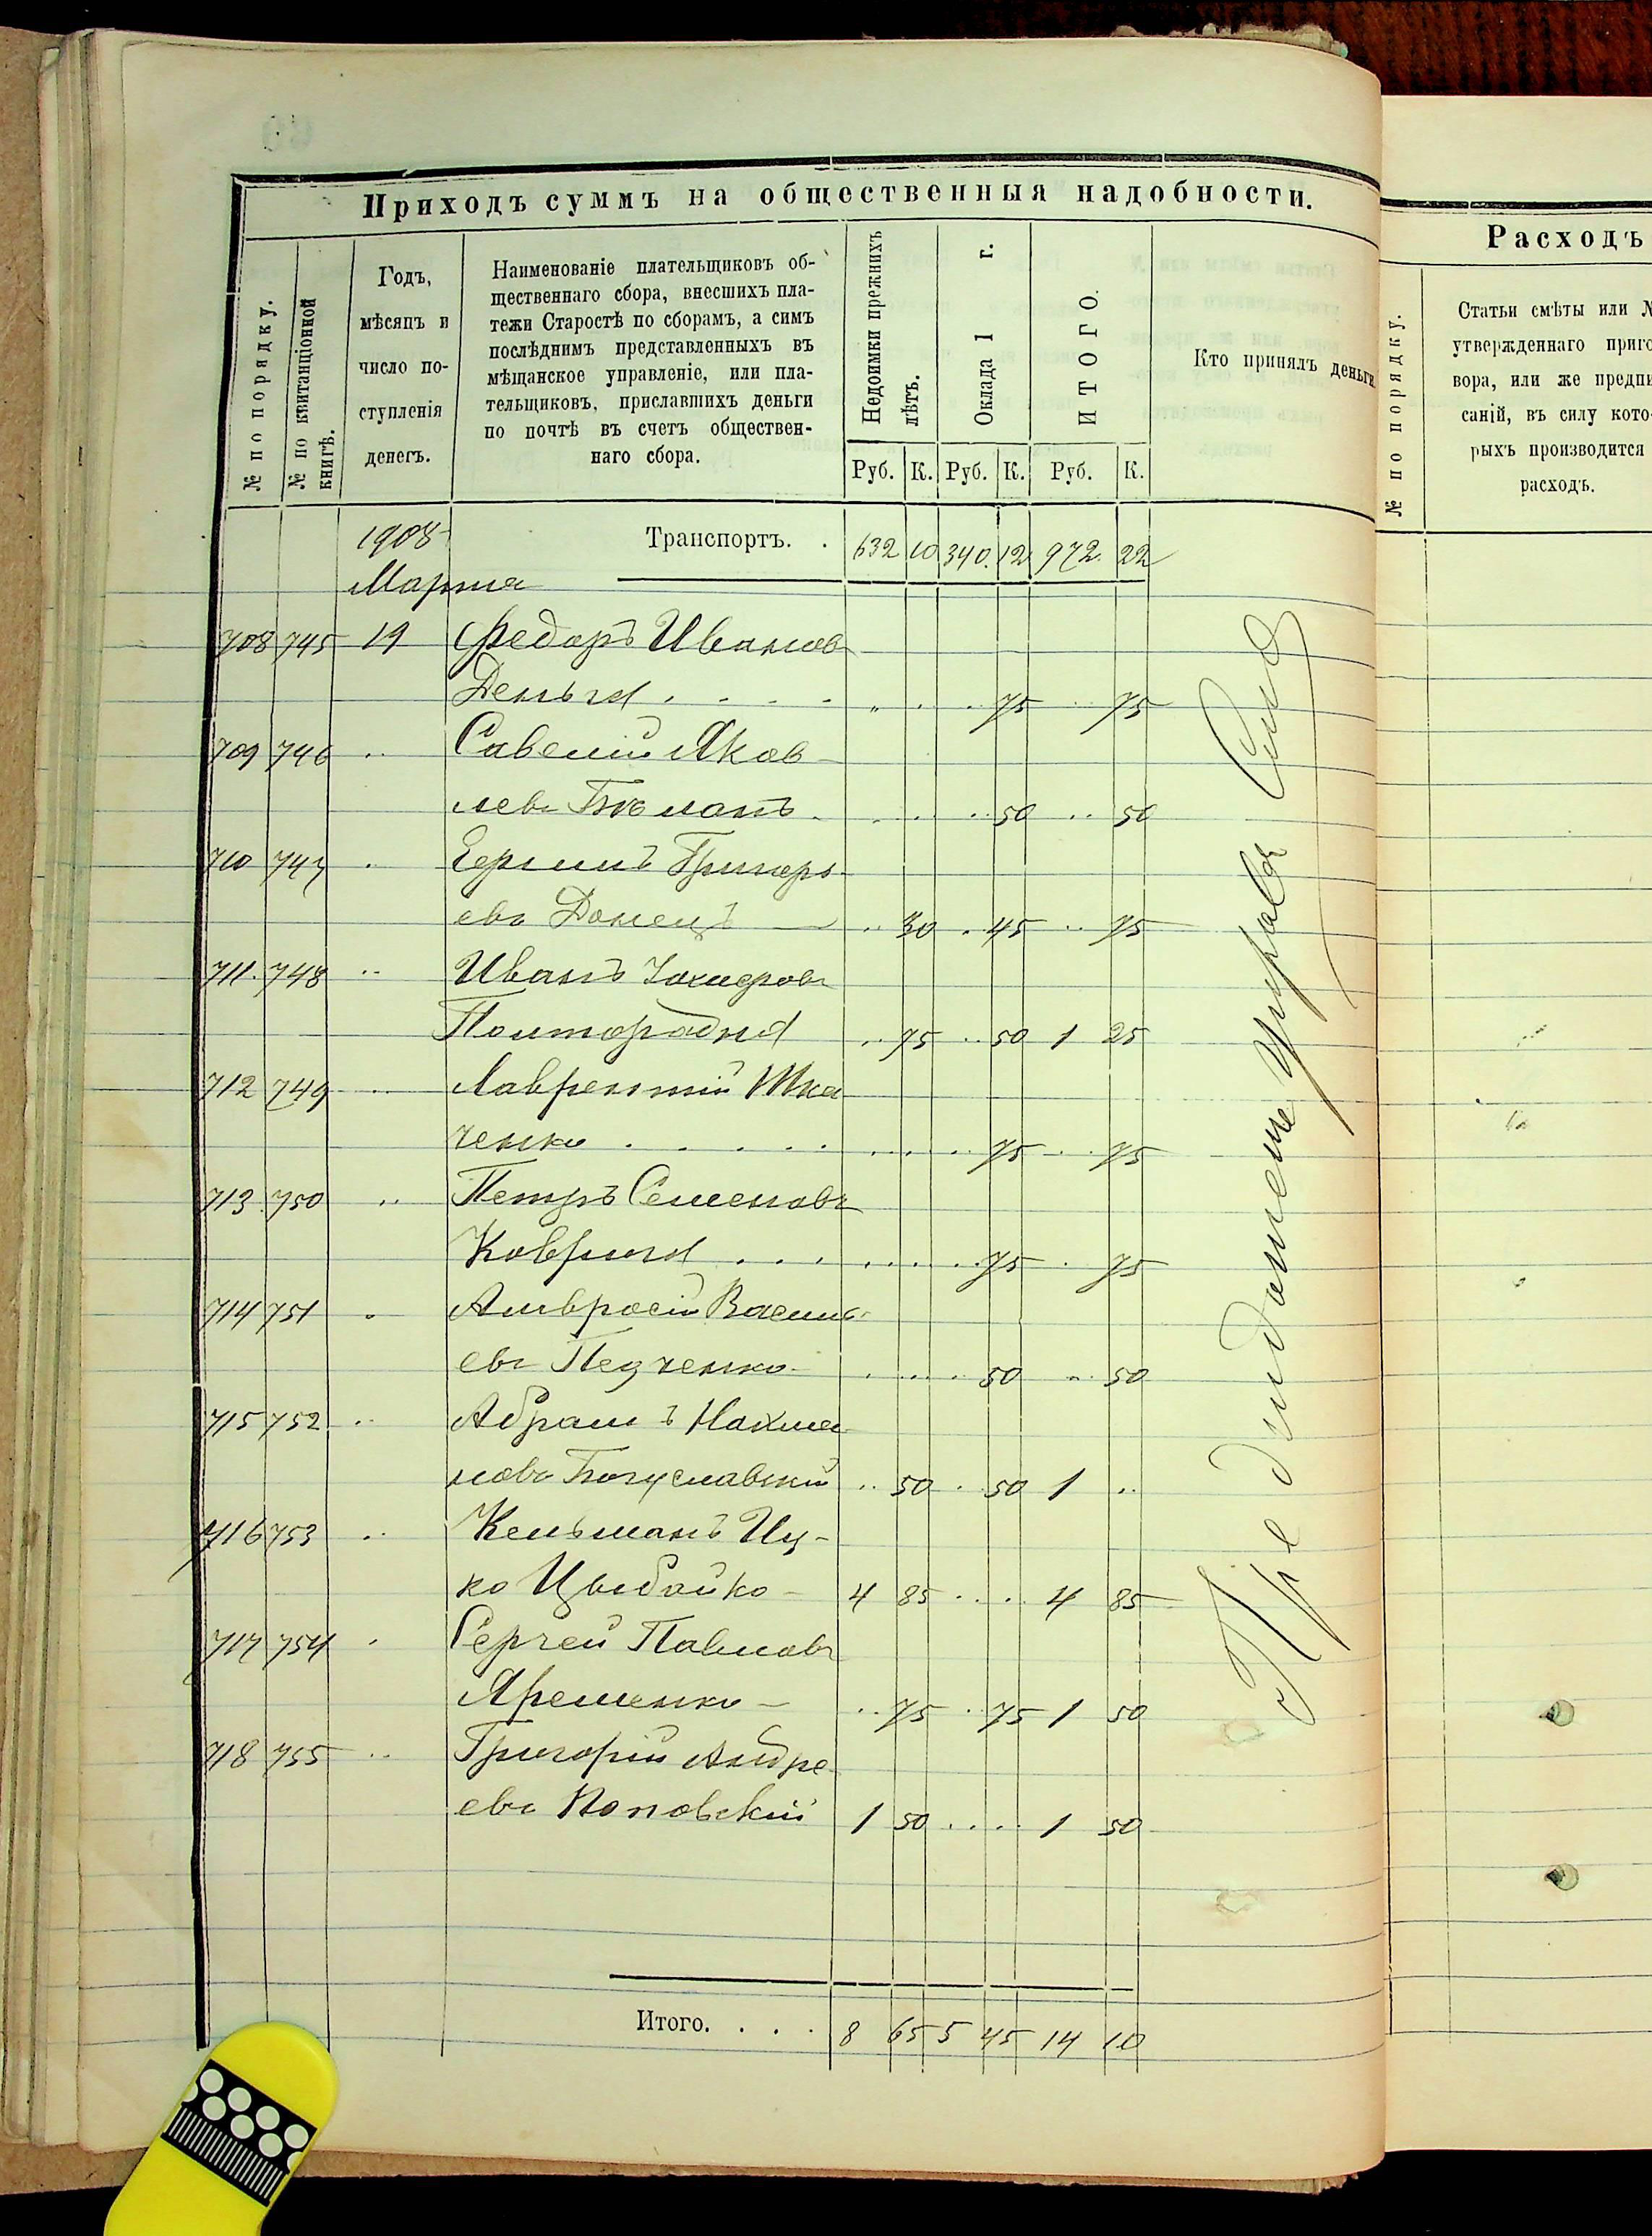 Приходъ суммъ на общественныя надобности.
№ по порядку.
№ по квитанціонной
книгѣ.
Годъ,
мѣсяцъ и
число по-
ступленія
денегъ.
Наименованіе плательщиковъ об-
щественнаго сбора, внесшихъ пла-
тежи Старостѣ по сборамъ, а симъ
послѣднимъ представленныхъ въ
мѣщанское управленіе, или пла-
тельщиковъ, приславшихъ деньги
по почтѣ въ счетъ обществен-
наго сбора.
Недоимки прежнихъ
лѣтъ.
Оклада 1 г.
ИТОГО.
Кто принялъ деньги
Руб. К. Руб. К. Руб. К.
1908 Транспортъ. . 632 10 340. 12 972. 22
Марта
708 745 19 Федоръ Иванов
Деньга . . . . „ . . . 75 . . 75
709 746 .. Савелій Яков
левъ . . . . . 50 .. 50
710 747 . Григорь
евъ Донецъ — .. 30 . 45 .. 75
711. 748 .. Иванъ
Полторадня .. 75 .. 50 1 25
712 749 .. Лаврентій Тка
ченко . . . . . . . . . . 75 . . 75
713 750 .. Петръ Семеновъ
Коврига . . . . . . . . 75 . 75
714 751 . Амвросій Василь
евъ . . . . . 50 .. 50
715 752 .. Абрамъ Нахма
новъ Богуславскій .. 50 . 50 1 ..
716 753 .. Кельманъ Иц-
ко Цыбайко - 4 85 . . . . 4 85
717 754 . Сергей Павловъ
Яременко - .. 75 .. 75 1 50
718 755 .. Григорій Андре
евъ Поповскій 1 50 . . . . 1 50
Итого. . . . 8 65 5 45 14 10
Расходъ
№ по порядку.
Статьи смѣты или №
утвержденнаго приго
вора, или же предпи
саній, въ силу кото
рыхъ производится
расходъ.